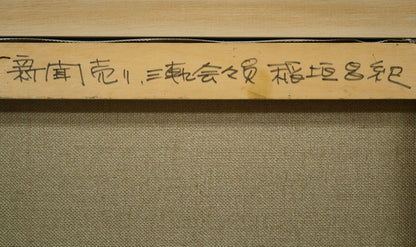 新聞売り、三軌会々員 稲垣昌紀